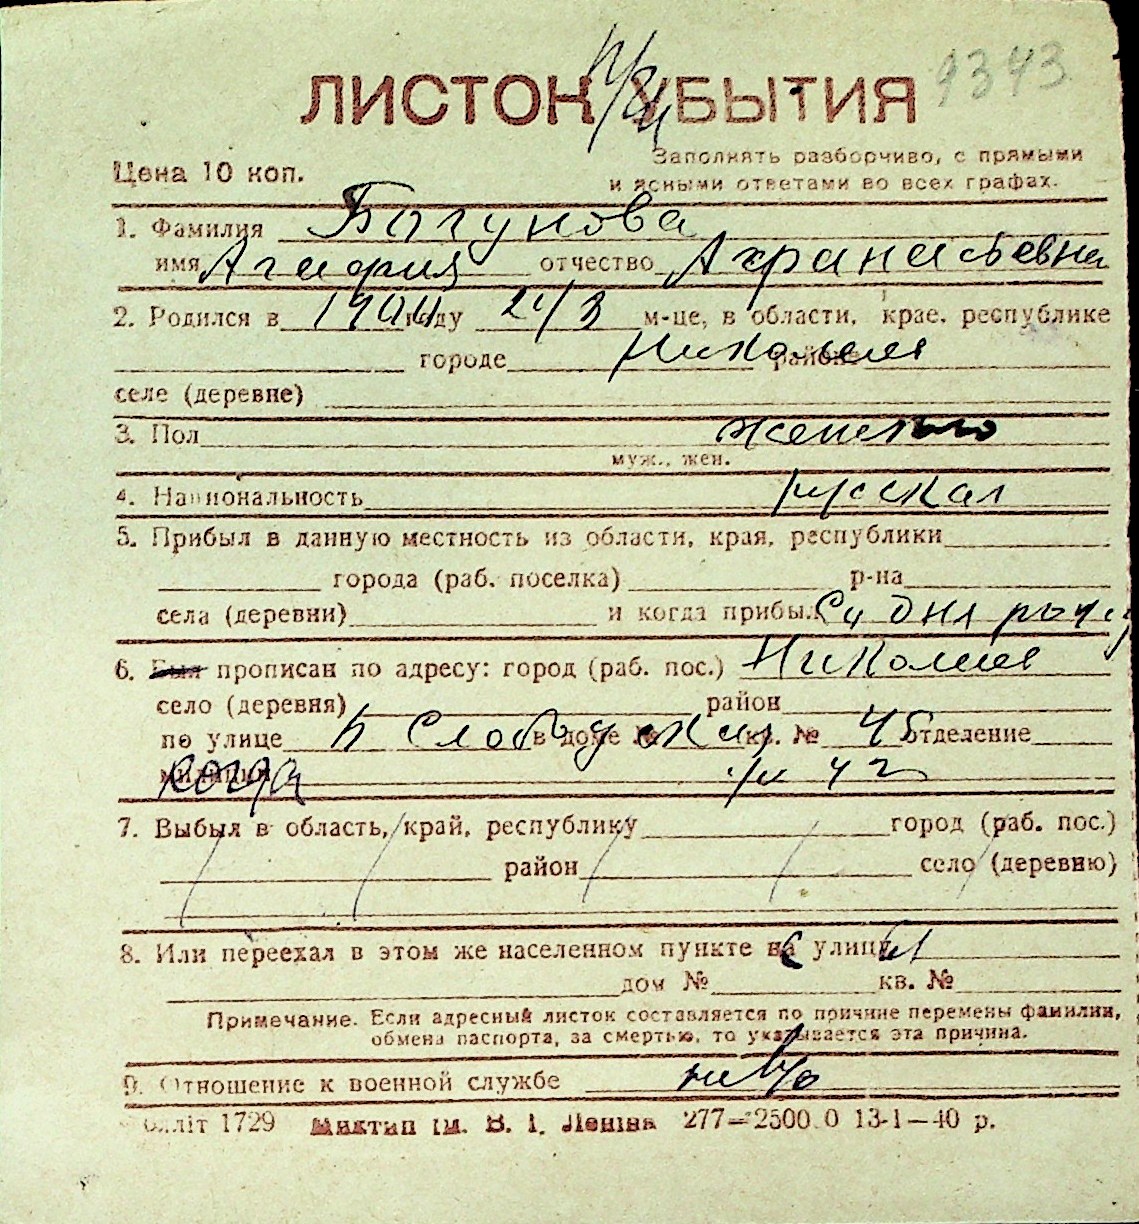 9343
ЛИСТОК УБЫТИЯ
Цена 10 коп.
Заполнять разборчиво, с прямыми
и ясными ответами во всех графах.
1. Фамилия Богунова
имя Агафия отчество Афанасьевна
2. Родился в 1904 году 24/3 м-це, в области, крае, республике
городе Николаев районе
селе (деревне)
3. Пол женский
муж., жен.
4. Национальность русская
5. Прибыл в данную местность из области, края, республики
города (раб. поселка) р-на
села (деревни) и когда прибыл Со дня рожд
6. Был прописан по адресу: город (раб. пос.) Николаев
село (деревня) район
по улице Слободская в доме № кв. № 45 отделение
милиции 42
7. Выбыл в область, край, республику город (раб. пос.)
район село (деревню)
8. Или переехал в этом же населенном пункте на улицу
дом № кв. №
Примечание. Если адресный листок составляется по причине перемены фамилии,
обмена паспорта, за смертью, то указывается эта причина.
9. Отношение к военной службе н/в/о
1729 Миктип ім. В. І. Леніна 277—2500.0 13-1—40 р.